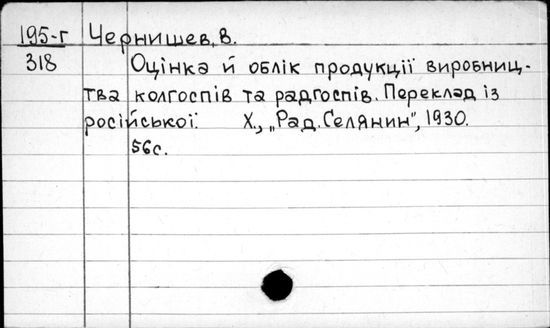 195-г Чернишев, В.
318 Оцінка й облік продукції виробниц-
тва колгоспів та радгоспів. Переклад із
російської. Х., „Рад. Селянин", 1930.
56с.